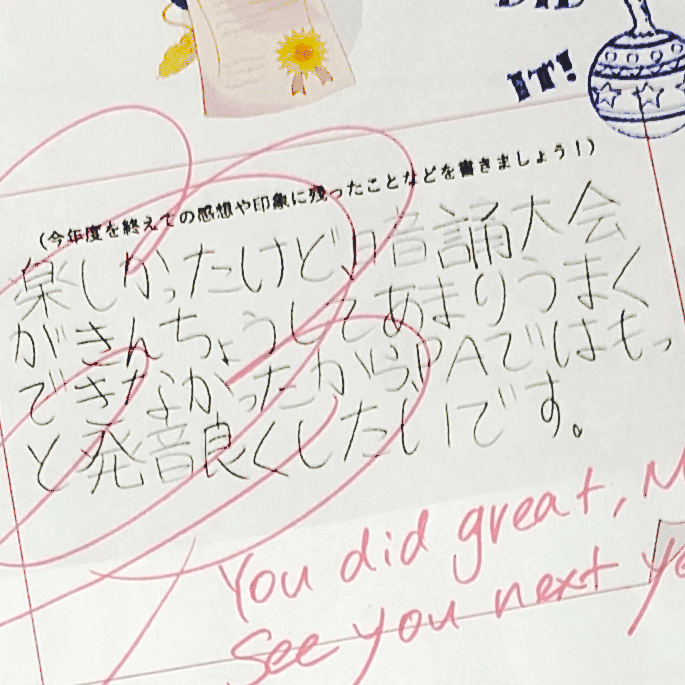 DID
IT!
（今年度を終えての感想や印象に残ったことなどを書きましょう！）
楽しかったけど、暗誦大会
がきんちょうしてあまりうまく
できなかったから、PAではもっ
と発音良くしたいです。
You did great,
See you next